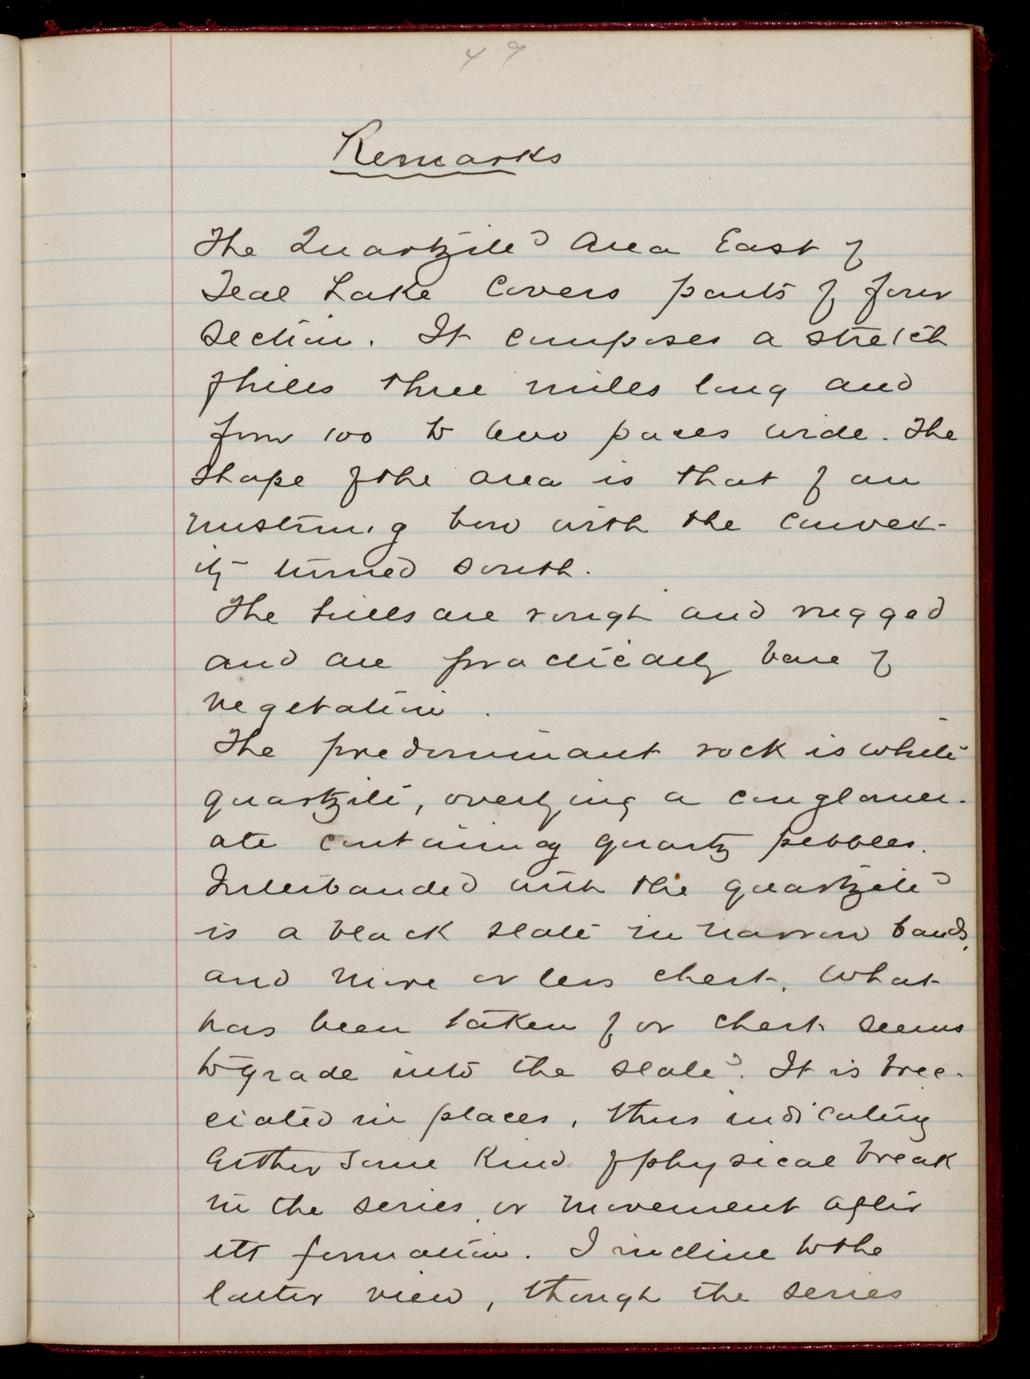 49
Remarks
The Quartzite Area East of
Teal Lake Covers parts of four
section. It composes a stretch
of hills three miles long and
from 100 to 600 paces wide. The
shape of the area is that of an
unstrung bow with the convex-
ity turned South.
The hills are rough and rugged
and are practically bare of
vegetation.
The predominant rock is white
quartzite, overlying a conglomer-
ate containing quartz pebbles.
Interbanded with the quartzite
is a black slate in narrow bands,
and more or less chert. What
has been taken for chert seems
to grade into the slate. It is brec-
ciated in places, thus indicating
Either some Kind of physical break
in the series, or movement after
its formation. I incline to the
latter view, though the series